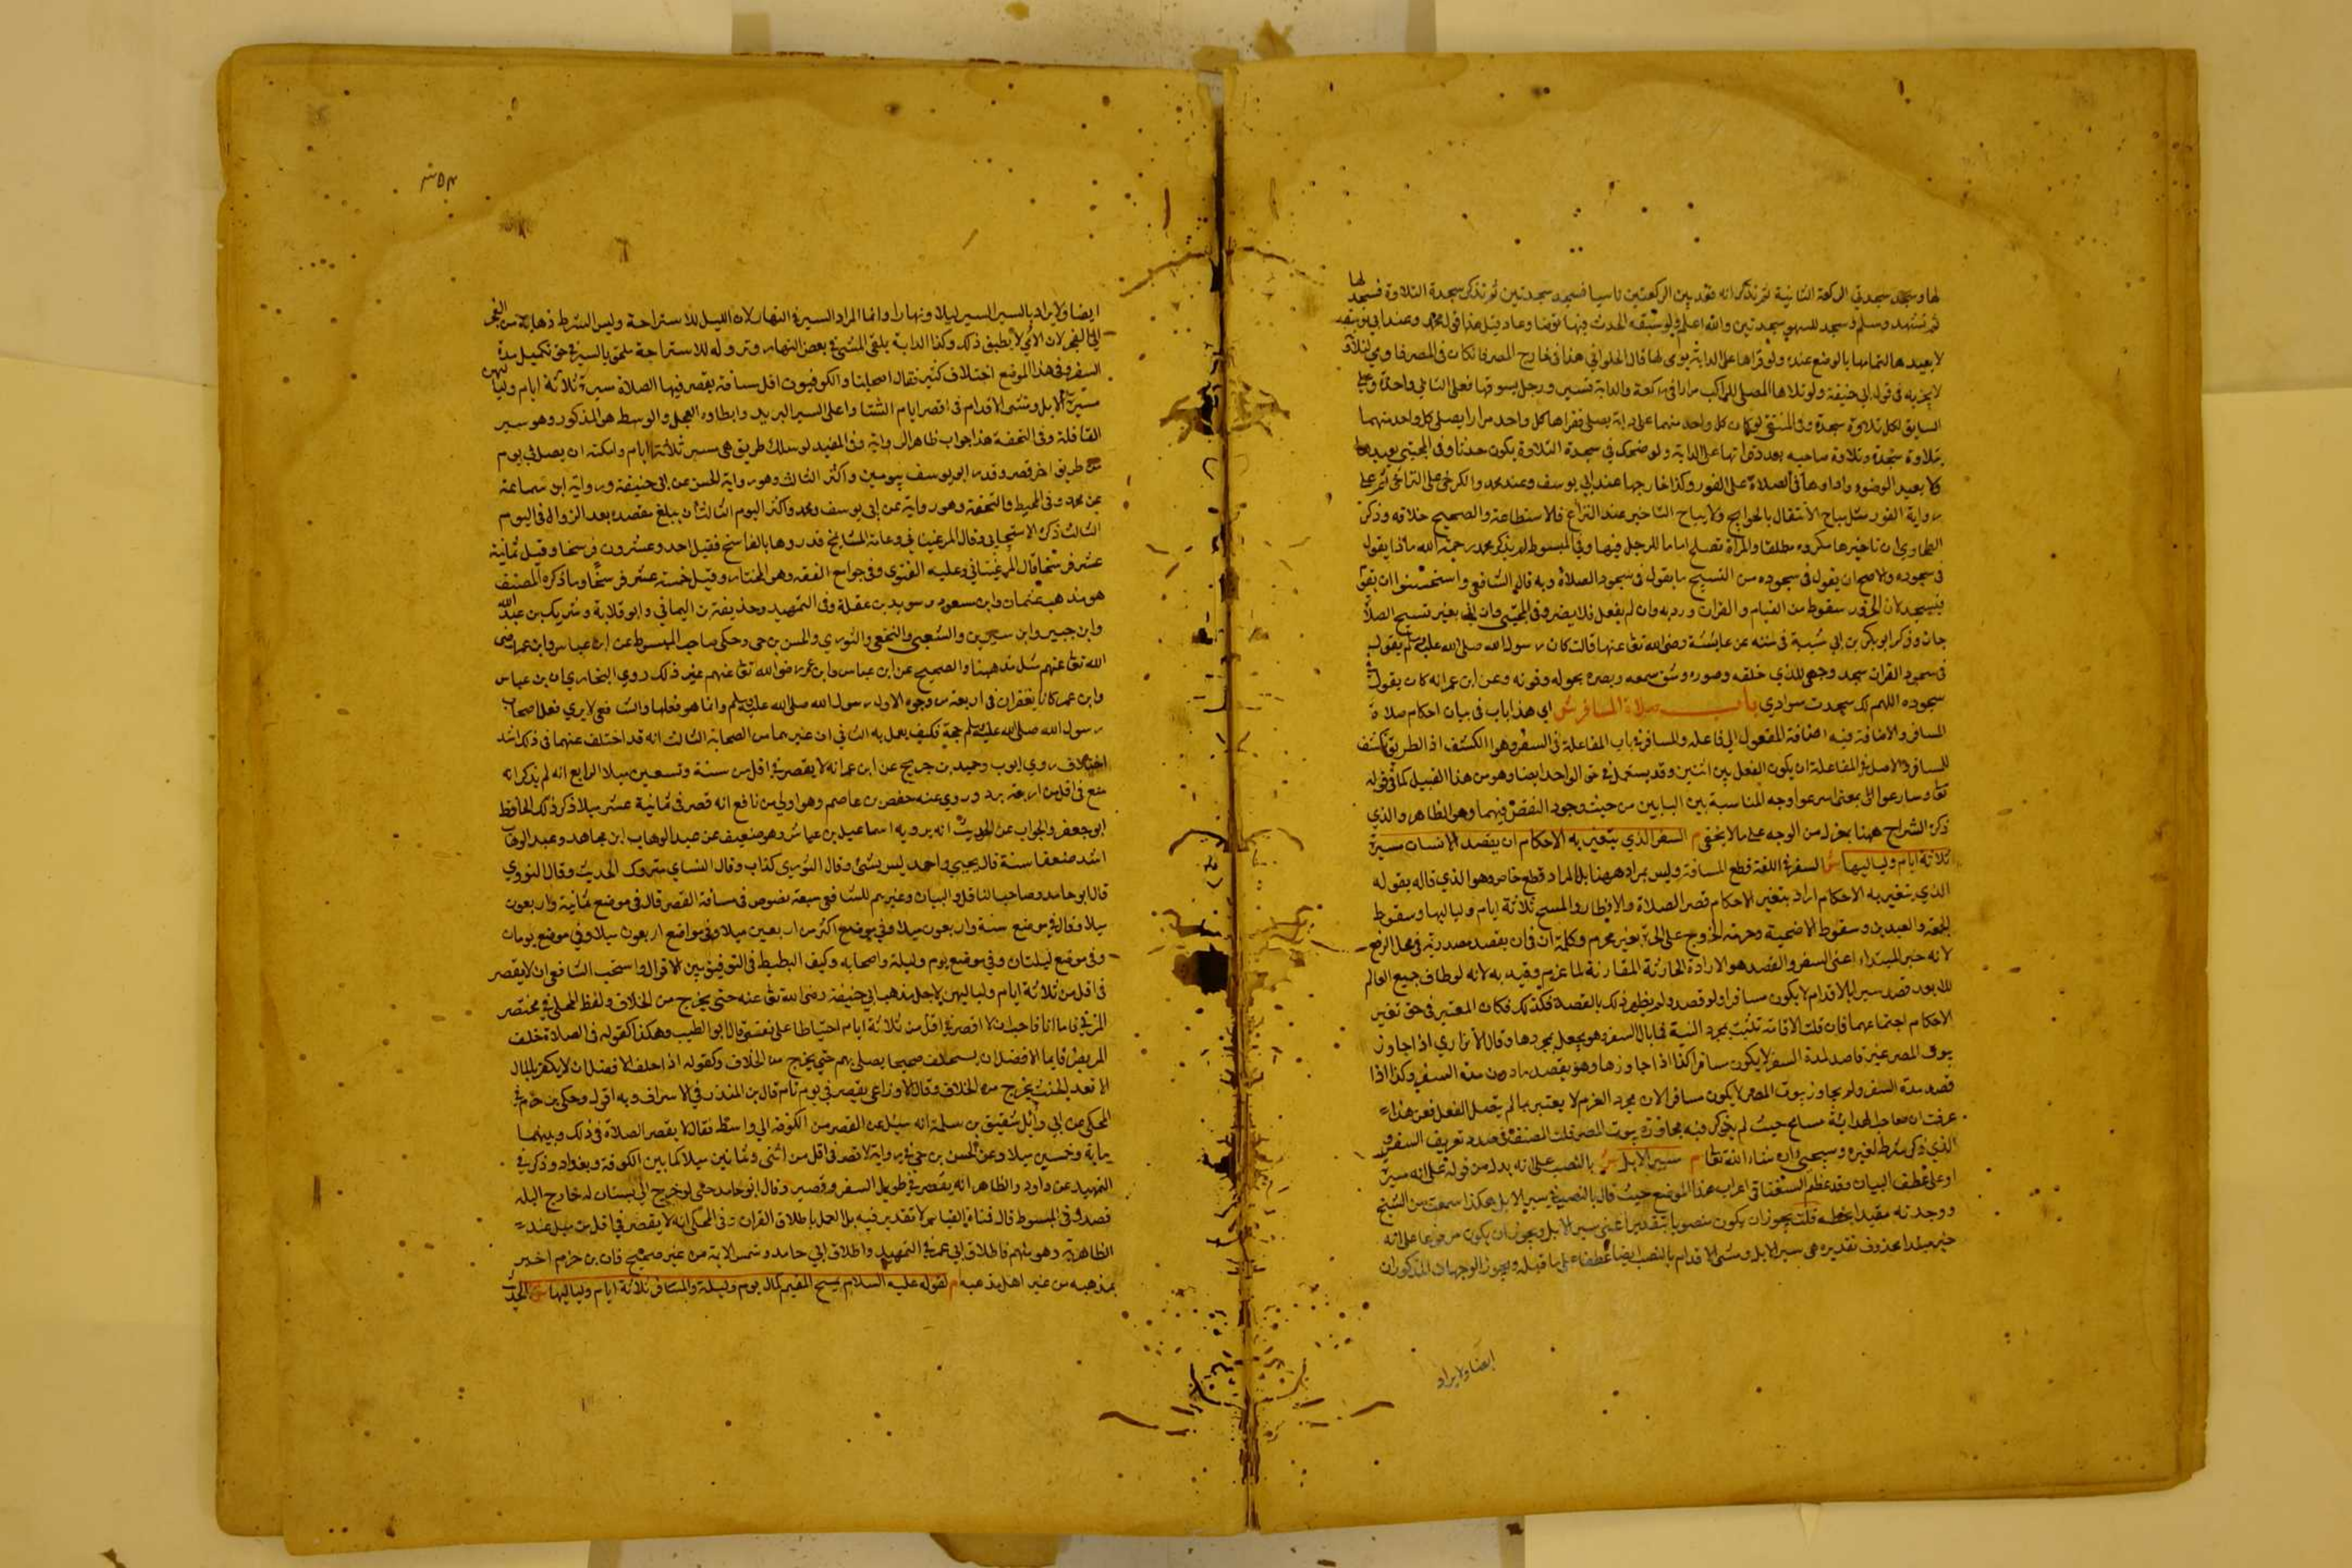 لها وسجد سجدتي الركعة الثانية ثم تذكر انه قعد بين الركعتين ناسيا فسجد سجدتين ثم تذكر سجدة التلاوة فسجد لها
ثم تشهد وسلم ثم سجد للسهو سجدتين والله اعلم ولو سبقه الحدث فيها توضا وعاد قبل هذا قول محمد وعند ابي يوسف
لا يعيدها لتمامها بالوضع عنده ولو قراها على الدابة يومى لها قال الحلواني هذا في خارج المصر فاما كان في المصر فاومى لتلاوة
لا يجزيه في قول ابي حنيفة ولو تلاها المصلي للراكب مرارا في ركعة والدابة تسير ورجل يسوقها فعلى الثاني واحدة وعلى
السابق لكل تلاوة سجدة وفي المنتقى لو كان كل واحد منهما على دابة يصلي فقراها كل واحد مرارا يصلي كل واحد منهما
بتلاوة سجدة وتلاوة صاحبه بعد قراتها على الدابة ولو ضحك في سجدة التلاوة يكون حدثا وفي المجتبى يعيدها
كما يعيد الوضوء واداوها في الصلاة على الفور وكذا خارجها عند ابي يوسف وعند محمد والكرخي على التراخي ثم على
رواية الفور هل يباح الانتقال بالحوايج ولا يباح التاخير عند النزاع فلا استطاعة والصحيح خلافه وذكر
الطحاوي ان تاخيرها مكروه مطلقا والمراة تصلح اماما للرجل فيها وفي المبسوط لم يذكر محمد رحمة الله ماذا يقول
في سجوده والاصح ان يقول في سجوده من التسبيح ما يقول في سجود الصلاة وبه قال الشافعي واستحسنوا ان يقوم
فيسجد لان الخرور سقوط من القيام والقران ورد به وان لم يفعل فلا يضر وفي المجتبى وان اتى بغير تسبيح الصلاة
جاز وذكر ابو بكر بن ابي شيبة في سننه عن عايشة رضي الله تعا عنها قالت كان رسول الله صلى الله عليه وسلم يقول
في سجود القران سجد وجهي للذي خلقه وصوره وشق سمعه وبصره بحوله وقوته وعن ابن عمر انه كان يقول في
سجوده اللهم لك سجدت سوادي باب صلاة المسافر ش اي هذا باب في بيان احكام صلاة
المسافر والاضافة فيه اضافة المفعول الى فاعله والمسافر في باب المفاعلة في السفر وهو الكشف اذ الطريق كشف
للمسافر والاصل في المفاعلة ان يكون الفعل بين اثنين وقد يستعمل في حق الواحد ايضا وهو من هذا القبيل كما في قوله
تعا وسارعوا الى بمعنى اسرعوا وجه المناسبة بين البابين من حيث وجود النقص فيهما وهو الظاهر والذي
ذكره الشراح ههنا بمعزل من الوجه على ما لا يخفى م السفر الذي يتغير به الاحكام ان يقصد الانسان مسيرة
ثلاثة ايام ولياليها ش السفر في اللغة قطع المسافة وليس بمراد ههنا بل المراد قطع خاص وهو الذي قاله بقوله
الذي يتغير به الاحكام اراد بتغير الاحكام قصر الصلاة والافطار والمسح ثلاثة ايام ولياليها وسقوط
الجمعة والعيدين وسقوط الاضحية وحرمة الخروج على الحرة بغير محرم وكلمة ان في ان يقصد مصدرية في محل الرفع
لانه خبر المبتداء اعني السفر والقصد هو الارادة الحادثة المقارنة لما عزم وقيد به لانه لو طاف جميع العالم
بلا قصد سير الايام لا يكون مسافرا ولو قصد ولم يظهر ذلك بالقصد فكذلك فكان المعتبر في حق تغير
الاحكام اجتماعهما فان قلت الاقامة تثبت بمجرد النية فما بال السفر وهو يجعل بمجردها وقال الاتراري اذا جاوز
بيوت المصر غير قاصد لمدة السفر لا يكون مسافرا كذا اذا جاوزها وهو يقصد ما دون مدة السفر وكذا اذا
قصد مدة السفر ولم يجاوز بيوت المصر لا يكون مسافرا لان مجرد العزم لا يعتبر ما لم يتصل الفعل فعن هذا
عرفت ان صاحب الهداية تسامح حيث لم يذكر فيه مجاوزة بيوت المصر قلت المصنف في صدد تعريف السفر
الذي ذكر شرط لغيره وسيجي ان شاء الله تعا م سير الابل ش بالنصب على انه بدل من قوله على انه مسيرة
او على عطف البيان وقد عظم السغناقي اعراب هذا الموضع حيث قال بالنصب في سير الابل هكذا سمعت من الشيخ
ووجدته مقيدا بخطه قلت يجوز ان يكون منصوبا بتقدير اعني سير الابل ويجوز ان يكون مرفوعا على انه
خبر مبتدا محذوف تقديره هي سير الابل ومشى الاقدام بالنصب ايضا عطفا على ما قبله ويجوز الوجهان المذكوران
ايضا ولا يراد
ايضا ولا يراد بالسير السير ليلا ونهارا وانما المراد السير في النهار لان الليل للاستراحة وليس الشرط ذهابه من الفجر
الى الفجر لان الادمي لا يطيق ذلك وكذا الدابة يلحق المشي في بعض النهار ونزوله للاستراحة ملحق بالسير في حق تكميل مدة
السفر وفي هذا الموضع اختلاف كثير فقال اصحابنا والكوفيون اقل مسافة يقصر فيها الصلاة مسيرة ثلاثة ايام ولياليهن
مسيرة الابل ومشى الاقدام في اقصر ايام الشتا واعلى السير البريد وابطاوه العجل والوسط هو المذكور وهو سير
القافلة وفي التحفة هذا جواب ظاهر الرواية وفي المفيد لو سلك طريق هي مسير ثلاثة ايام وامكنه ان يصل في يوم
من طريق اخر قصر وقدر ابو يوسف بيومين واكثر الثالث وهو رواية الحسن عن ابي حنيفة ورواية ابن سماعة
عن محمد وفي المحيط والتحفة وهو رواية عن ابي يوسف ومحمد واكثر اليوم الثالث ان يبلغ مقصده بعد الزوال في اليوم
الثالث ذكره الاسبيجابي وقال المرغيناني وعامة المشايخ قدروها بالفراسخ فقيل احد وعشرون فرسخا وقيل ثمانية
عشر فرسخا قال المرغيناني وعليه الفتوى وفي جوامع الفقه وهو المختار وقيل خمسة عشر فرسخا وما ذكره المصنف
هو مذهب عثمان وابن مسعود وسويد بن غفلة وفي التمهيد وحذيفة بن اليماني وابو قلابة وشريك بن عبد الله
وابن جبير وابن سيرين والشعبي والنخعي والثوري والحسن بن حي وحكى صاحب المبسوط عن ابن عباس وابن عمر رضي
الله تعا عنهم مثل مذهبنا والصحيح عن ابن عباس وابن عمر رضي الله تعا عنهم غير ذلك روي البخاري ان بن عباس
وابن عمر كانا يقصران في اربعة من وجوه الاول رسول الله صلى الله عليه وسلم وانما هو فعلها والشافعي لا يرى فعل اصحاب
رسول الله صلى الله عليه وسلم حجة فكيف يعمل به الثاني ان غيرهما من الصحابة الثالث انه قد اختلف عنهما في ذلك اشد
اختلاف روي ايوب وحميد بن جريج عن ابن عمر انه لا يقصر في اقل من ستة وتسعين ميلا الرابع انه لم يذكر انه
منع في اقل من اربعة برد وروي عنه حفص بن عاصم وهو اولى من نافع انه قصر في ثمانية عشر ميلا ذكر ذلك الحافظ
ابو جعفر والجواب عن الحديث انه يرويه اسماعيل بن عياش وهو ضعيف عن عبد الوهاب ابن مجاهد وعبد الوهاب
اشد ضعفا منه قال يحيى واحمد ليس بشئ وقال الثوري كذاب وقال النساي متروك الحديث وقال النووي
قال ابو حامد وصاحب الشامل والبيان وغيرهم للشافعي سبعة نصوص في مسافة القصر قال في موضع ثمانية واربعون
ميلا وقال في موضع ستة واربعون ميلا وفي موضع اكثر من اربعين ميلا وفي مواضع اربعون ميلا وفي موضع يومان
وفي موضع ليلتان وفي موضع يوم وليلة واصحابه وكيف التوفيق بين الاقوال واستحب الشافعي ان لا يقصر
في اقل من ثلاثة ايام ولياليهن لاجل مذهب ابي حنيفة رضي الله تعا عنه حتى يخرج من الخلاف ولفظ المحلى في مختصر
المزني فاما انا فاحب ان لا اقصر في اقل من ثلاثة ايام احتياطا على نفسي قال ابو الطيب وهكذا كقوله في الصلاة خلف
المريض قايما الافضل ان يستخلف صحيحا يصلي بهم حتى يخرج من الخلاف وكقوله اذا حلف الافضل ان لا يكفر بالمال
الا بعد الحنث ليخرج من الخلاف وقال الاوزاعي يقصر في يوم تام قال بن المنذر في الاسراف وبه اقول وحكى بن حزم في
المحلى عن ابي وائل شقيق بن سلمة انه سئل عن القصر من الكوفة الى واسط فقال لا يقصر الصلاة في ذلك وبينهما
ماية وخمسين ميلا وعن الحسن بن حي في رواية لا قصر في اقل من اثنى وثمانين ميلا كما بين الكوفة وبغداد وذكر في
التمهيد عن داود والظاهر انه يقصر في طويل السفر وقصيره وقال ابو حامد حتى لو خرج الى بستان له خارج البلد
قصد وفي المبسوط قال نفاة القياس لا تقدير فيه بل العمل باطلاق القران وفي المحلى انه لا يقصر في اقل من ميل عند
الظاهرية وهو منهم فاطلاق ابي عمر في التمهيد واطلاق ابي حامد وشمس الايمة من غير صحيح فان بن حزم اخبر
بمذهبه من غير اهل مذهبه م لقوله عليه السلام يمسح المقيم كمال يوم وليلة والمسافر ثلاثة ايام ولياليها ش الحديث